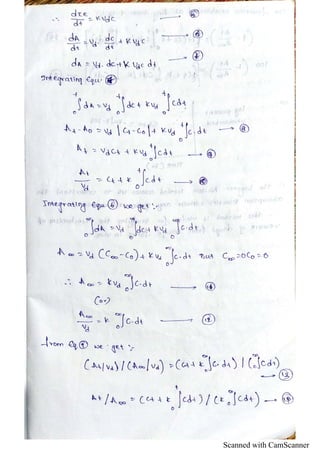 ∴ dXE/dt = KVdC → ⑤
dA/dt = Vd · dc/dt + KVdC → ⑥
dA = Vd · dc + K Vdc dt → ⑦
Integrating Equ ⑦
₀∫ᵗ dA = Vd ₀∫ᵗ dc + KVd ₀∫ᵗ cdt
At - A0 = Vd | Ct - Co | + KVd ₀∫ᵗ c.dt → ⑧
At = VdCt + KVd ₀∫ᵗ cdt → ⑨
At/Vd = Ct + k ₀∫ᵗ cdt → ⑩
Integrating Equ ⑥ we get :-
₀∫^∞ dA = Vd ₀∫^∞ dc + KVd ₀∫^∞ c.dt.
A∞ = Vd (C∞ - C0) + KVd ₀∫^∞ c.dt But C∞ = 0 C0 = 0
∴ A∞ = KVd ₀∫^∞ c.dt →
(or)
A∞/Vd = K ₀∫^∞ c.dt → ⑫
from Eq ⑨ we get :-
(At/Vd) / (A∞/Vd) = (Ct + K ₀∫ᵗ c.dt) / (₀∫^∞ cdt)
→ ⑬
At/A∞ = (Ct + K ₀∫ᵗ cdt) / (K ₀∫^∞ cdt) → ⑭
Scanned with CamScanner